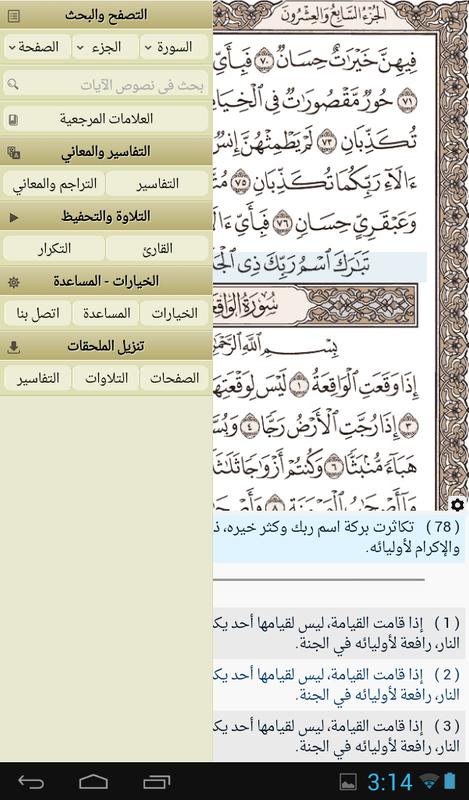 التصفح والبحث
السورة الجزء الصفحة
بحث في نصوص الآيات
العلامات المرجعية
التفاسير والمعاني
التفاسير التراجم والمعاني
التلاوة والتحفيظ
القارئ التكرار
الخيارات - المساعدة
الخيارات المساعدة اتصل بنا
تنزيل الملحقات
الصفحات التلاوات التفاسير
الجزء السابع والعشرون
فِيهِنَّ خَيْرَٰتٌ حِسَانٌ ٧٠ فَبِأَيِّ
٧١ حُورٌ مَّقْصُورَٰتٌ فِي ٱلْخِيَامِ
تُكَذِّبَانِ ٧٣ لَمْ يَطْمِثْهُنَّ إِنسٌ
ءَالَآءِ رَبِّكُمَا تُكَذِّبَانِ ٧٥
وَعَبْقَرِيٍّ حِسَانٍ ٧٦ فَبِأَيِّ ءَالَآ
تَبَٰرَكَ ٱسْمُ رَبِّكَ ذِي
سُورَةُ الوَاقِعَة
بِسْمِ ٱللَّهِ ٱلرَّحْمَٰنِ
إِذَا وَقَعَتِ ٱلْوَاقِعَةُ ١ لَيْسَ لِوَقْعَتِهَا
٣ إِذَا رُجَّتِ ٱلْأَرْضُ رَجًّا ٤ وَبُسَّتِ
هَبَآءً مُّنۢبَثًّا ٦ وَكُنتُمْ أَزْوَٰجًا ثَلَٰثَةً
( 78 ) تكاثرت بركة اسم ربك وكثر خيره، ذ
والإكرام لأوليائه.
( 1 ) إذا قامت القيامة، ليس لقيامها أحد يك
النار، رافعة لأوليائه في الجنة.
( 2 ) إذا قامت القيامة، ليس لقيامها أحد يك
النار، رافعة لأوليائه في الجنة.
( 3 ) إذا قامت القيامة، ليس لقيامها أحد يك
النار، رافعة لأوليائه في الجنة.
3:14